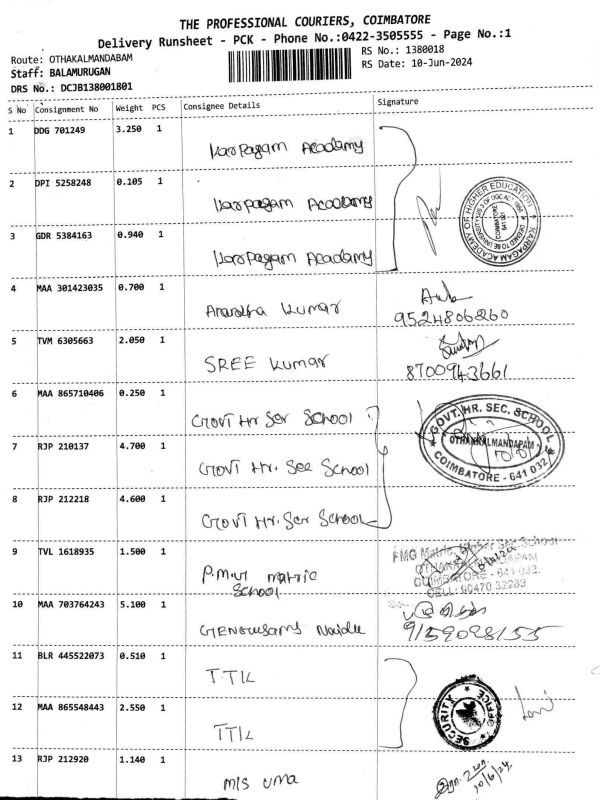 THE PROFESSIONAL COURIERS, COIMBATORE
Delivery Runsheet - PCK - Phone No.:0422-3505555 - Page No.:1
Route: OTHAKALMANDABAM
RS No.: 1380018
Staff: BALAMURUGAN
RS Date: 10-Jun-2024
DRS No.: DCJB138001801
S No Consignment No Weight PCS Consignee Details Signature
1 DDG 701249 3.250 1 Karpagam Academy
2 DPI 5258248 0.105 1 Karpagam Academy
KARPAGAM ACADEMY OF HIGHER EDUCATION
COIMBATORE 641 021
3 GDR 5384163 0.940 1 Karpagam Academy
4 MAA 301423035 0.700 1 Anandha Kumar
9524806260
5 TVM 6305663 2.050 1 SREE Kumar
8700943661
6 MAA 865710406 0.250 1 Govt Hr Ser School
GOVT. HR. SEC. SCHOOL
OTHAKKALMANDAPAM
COIMBATORE - 641 032
7 RJP 210137 4.700 1 Govt Hr. See School
8 RJP 212218 4.600 1 Govt Hr. Ser School
9 TVL 1618935 1.500 1 P.M.G matric
School
PMG Matric. Higher Sec School
COIMBATORE - 641 032.
CELL: 90470 32283
10 MAA 703764243 5.100 1 GENGUSAMY Naidu
9159098155
11 BLR 445522073 0.510 1 TTIL
SECURITY OFFICE
12 MAA 865548443 2.550 1 TTIL
13 RJP 212920 1.140 1 M/S uma
10/6/24